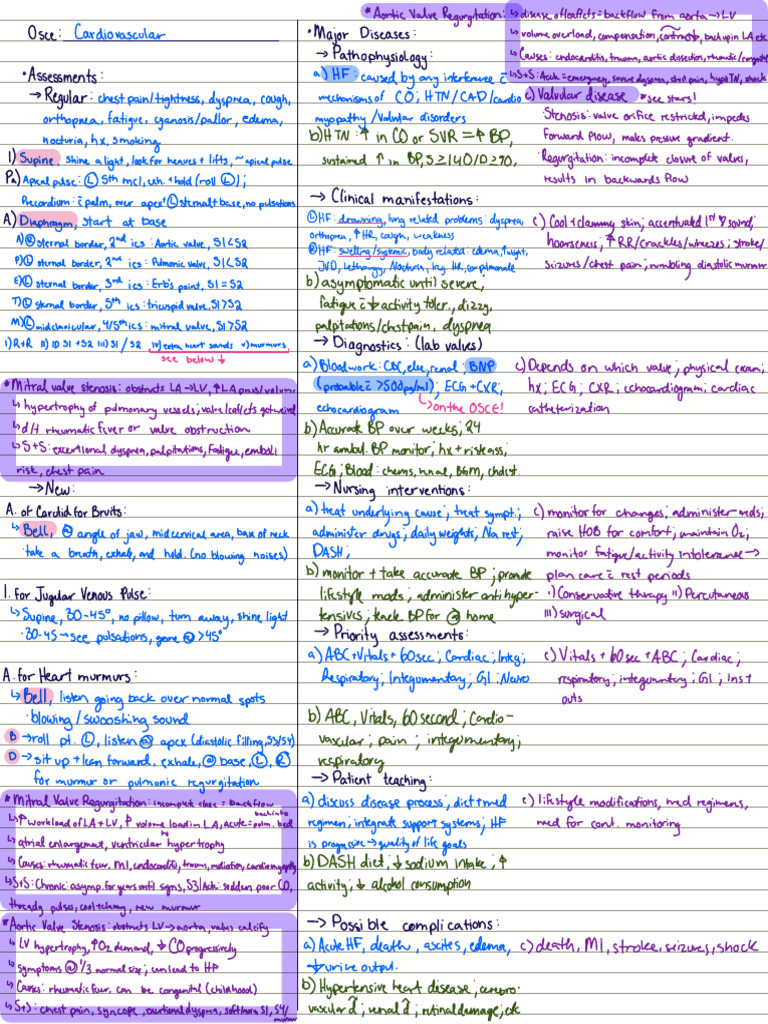 Osce: Cardiovascular
• Assessments:
→ Regular: chest pain/tightness, dyspnea, cough,
orthopnea, fatigue, cyanosis/pallor, edema,
nocturia, hx, smoking
1) Supine, shine a light, look for heaves + lifts, ~ apical pulse
Pa) Apical pulse: Ⓛ 5th mcl, exh. + hold (roll Ⓛ);
Precordium: c̄ palm, over apex + Ⓛ sternal + base, no pulsations
A) Diaphragm, start at base
A) Ⓡ sternal border, 2nd ics: Aortic valve, S1<S2
P) Ⓛ sternal border, 2nd ics: Pulmonic valve, S1<S2
E) Ⓛ sternal border, 3rd ics: Erb's point, S1=S2
T) Ⓛ sternal border, 5th ics: tricuspid valve, S1>S2
M) Ⓛ midclavicular, 4/5th ics: mitral valve, S1>S2
I) R+R II) ID S1+S2 III) S1/S2 IV) extra heart sounds V) murmurs,
see below ↓
*Mitral valve stenosis: obstructs LA→LV, ↑LA press/volume
↳ hypertrophy of pulmonary vessels; valve leaflets
↳ d/t rheumatic fever or valve obstruction
↳ S+S: exertional dyspnea, palpitations, fatigue, emboli
risk, chest pain
→ New:
A. of Carotid for Bruits:
↳ Bell, @ angle of jaw, mid cervical area, base of neck
take a breath, exhale, and hold. (no blowing noises)
I. for Jugular Venous Pulse:
↳ Supine, 30-45°, no pillow, turn away, shine light
• 30-45 → see pulsations, gone @ >45°
A. for Heart murmurs:
↳ Bell, listen going back over normal spots
• blowing/swooshing sound
B → roll pt. Ⓛ, listen @ apex (diastolic filling, S3/S4)
D → sit up + lean forward, exhale, @ base, Ⓛ, Ⓡ
for murmur or pulmonic regurgitation
*Mitral Valve Regurgitation: incomplete close = backflow
back into
↳ ↑ workload of LA+LV, ↑ volume load in LA, acute = pulm. bed
↳ atrial enlargement, ventricular hypertrophy
↳ Causes: rheumatic fever, MI, endocarditis, trauma, radiation, cardiomyopathy
↳ S+S: Chronic: asymp. for years until signs, S3/Acute: sudden poor CO,
thready pulses, cool + clammy, new murmur
*Aortic Valve Stenosis: obstructs LV→aorta, valves calcify
↳ LV hypertrophy, ↑O2 demand, ↓CO progressively
↳ symptoms @ 1/3 normal size; can lead to HF
↳ Causes: rheumatic fever. can be congenital (childhood)
↳ S+S: chest pain, syncope, exertional dyspnea, soft/norm S1, S4/
murmur
*Aortic Valve Regurgitation: ↳ disease of leaflets = backflow from aorta → LV
↳ volume overload, compensation, contract↓, back up in LA etc
↳ Causes: endocarditis, trauma, aortic dissection, rheumatic/congenital
↳ S+S: Acute = emergency, severe dyspnea, chest pain, hypoTN, shock
• Major Diseases:
→ Pathophysiology:
a) HF: caused by any interference c̄
mechanisms of CO; HTN/CAD/cardio
myopathy/valvular disorders
b) HTN: ↑ in CO or SVR = ↑ BP,
sustained ↑ in BP, S≥140/D≥90,
c) Valvular disease *see stars!
Stenosis: valve orifice restricted, impedes
forward flow, makes pressure gradient.
• Regurgitation: incomplete closure of valves,
results in backwards flow
→ Clinical manifestations:
Ⓛ HF: drowning, lung related problems: dyspnea,
orthopnea, ↑HR, cough, weakness
Ⓡ HF: swelling/systemic, body related: edema, ↑weight,
JVD, lethargy, Nocturia, Irreg. HR, cor pulmonale
b) asymptomatic until severe,
fatigue c̄ ↓activity toler., dizzy,
palpitations/chest pain, dyspnea
c) Cool + clammy skin; accentuated 1st ♥ sound;
hoarseness; ↑RR/crackles/wheezes; stroke/
seizures/chest pain; rumbling diastolic murmur
→ Diagnostics: (lab values)
a) Bloodwork: CBC, elec, renal; BNP
(probable c̄ >500pg/ml); ECG + CXR;
echocardiogram ↳ on the OSCE!
b) Accurate BP over weeks; 24
hr ambul. BP monitor; hx + risk ass;
ECG; Blood: chems, renal, BGM, cholest.
c) Depends on which valve; physical exam;
hx; ECG; CXR; echocardiogram; cardiac
catheterization
→ Nursing interventions:
a) treat underlying cause; treat sympt.;
administer drugs, daily weights, Na rest;
DASH;
b) monitor + take accurate BP; promote
lifestyle mods; administer antihyper-
tensives; teach BP for @ home
c) monitor for changes; administer meds;
raise HOB for comfort; maintain O2;
monitor fatigue/activity intolerance →
plan care c̄ rest periods
I) Conservative therapy II) Percutaneous
III) surgical
→ Priority assessments:
a) ABC + Vitals + 60sec; Cardiac; Integ;
Respiratory; Integumentary; GI; Neuro
b) ABC, Vitals, 60 second; Cardio-
vascular; pain; integumentary;
respiratory
c) Vitals + 60 sec + ABC; Cardiac;
respiratory; integumentary; GI; Ins +
outs
→ Patient teaching:
a) discuss disease process; diet + med
regimen; integrate support systems; HF
is progressive → quality of life goals
b) DASH diet; ↓ sodium intake; ↑
activity; ↓ alcohol consumption
c) lifestyle modifications, med regimens,
med for cont. monitoring
→ Possible complications:
a) Acute HF, death, ascites, edema,
↓ urine output.
b) Hypertensive heart disease; cerebro-
vascular d̃; renal d̃; retinal damage; etc
c) death, MI, stroke, seizures, shock